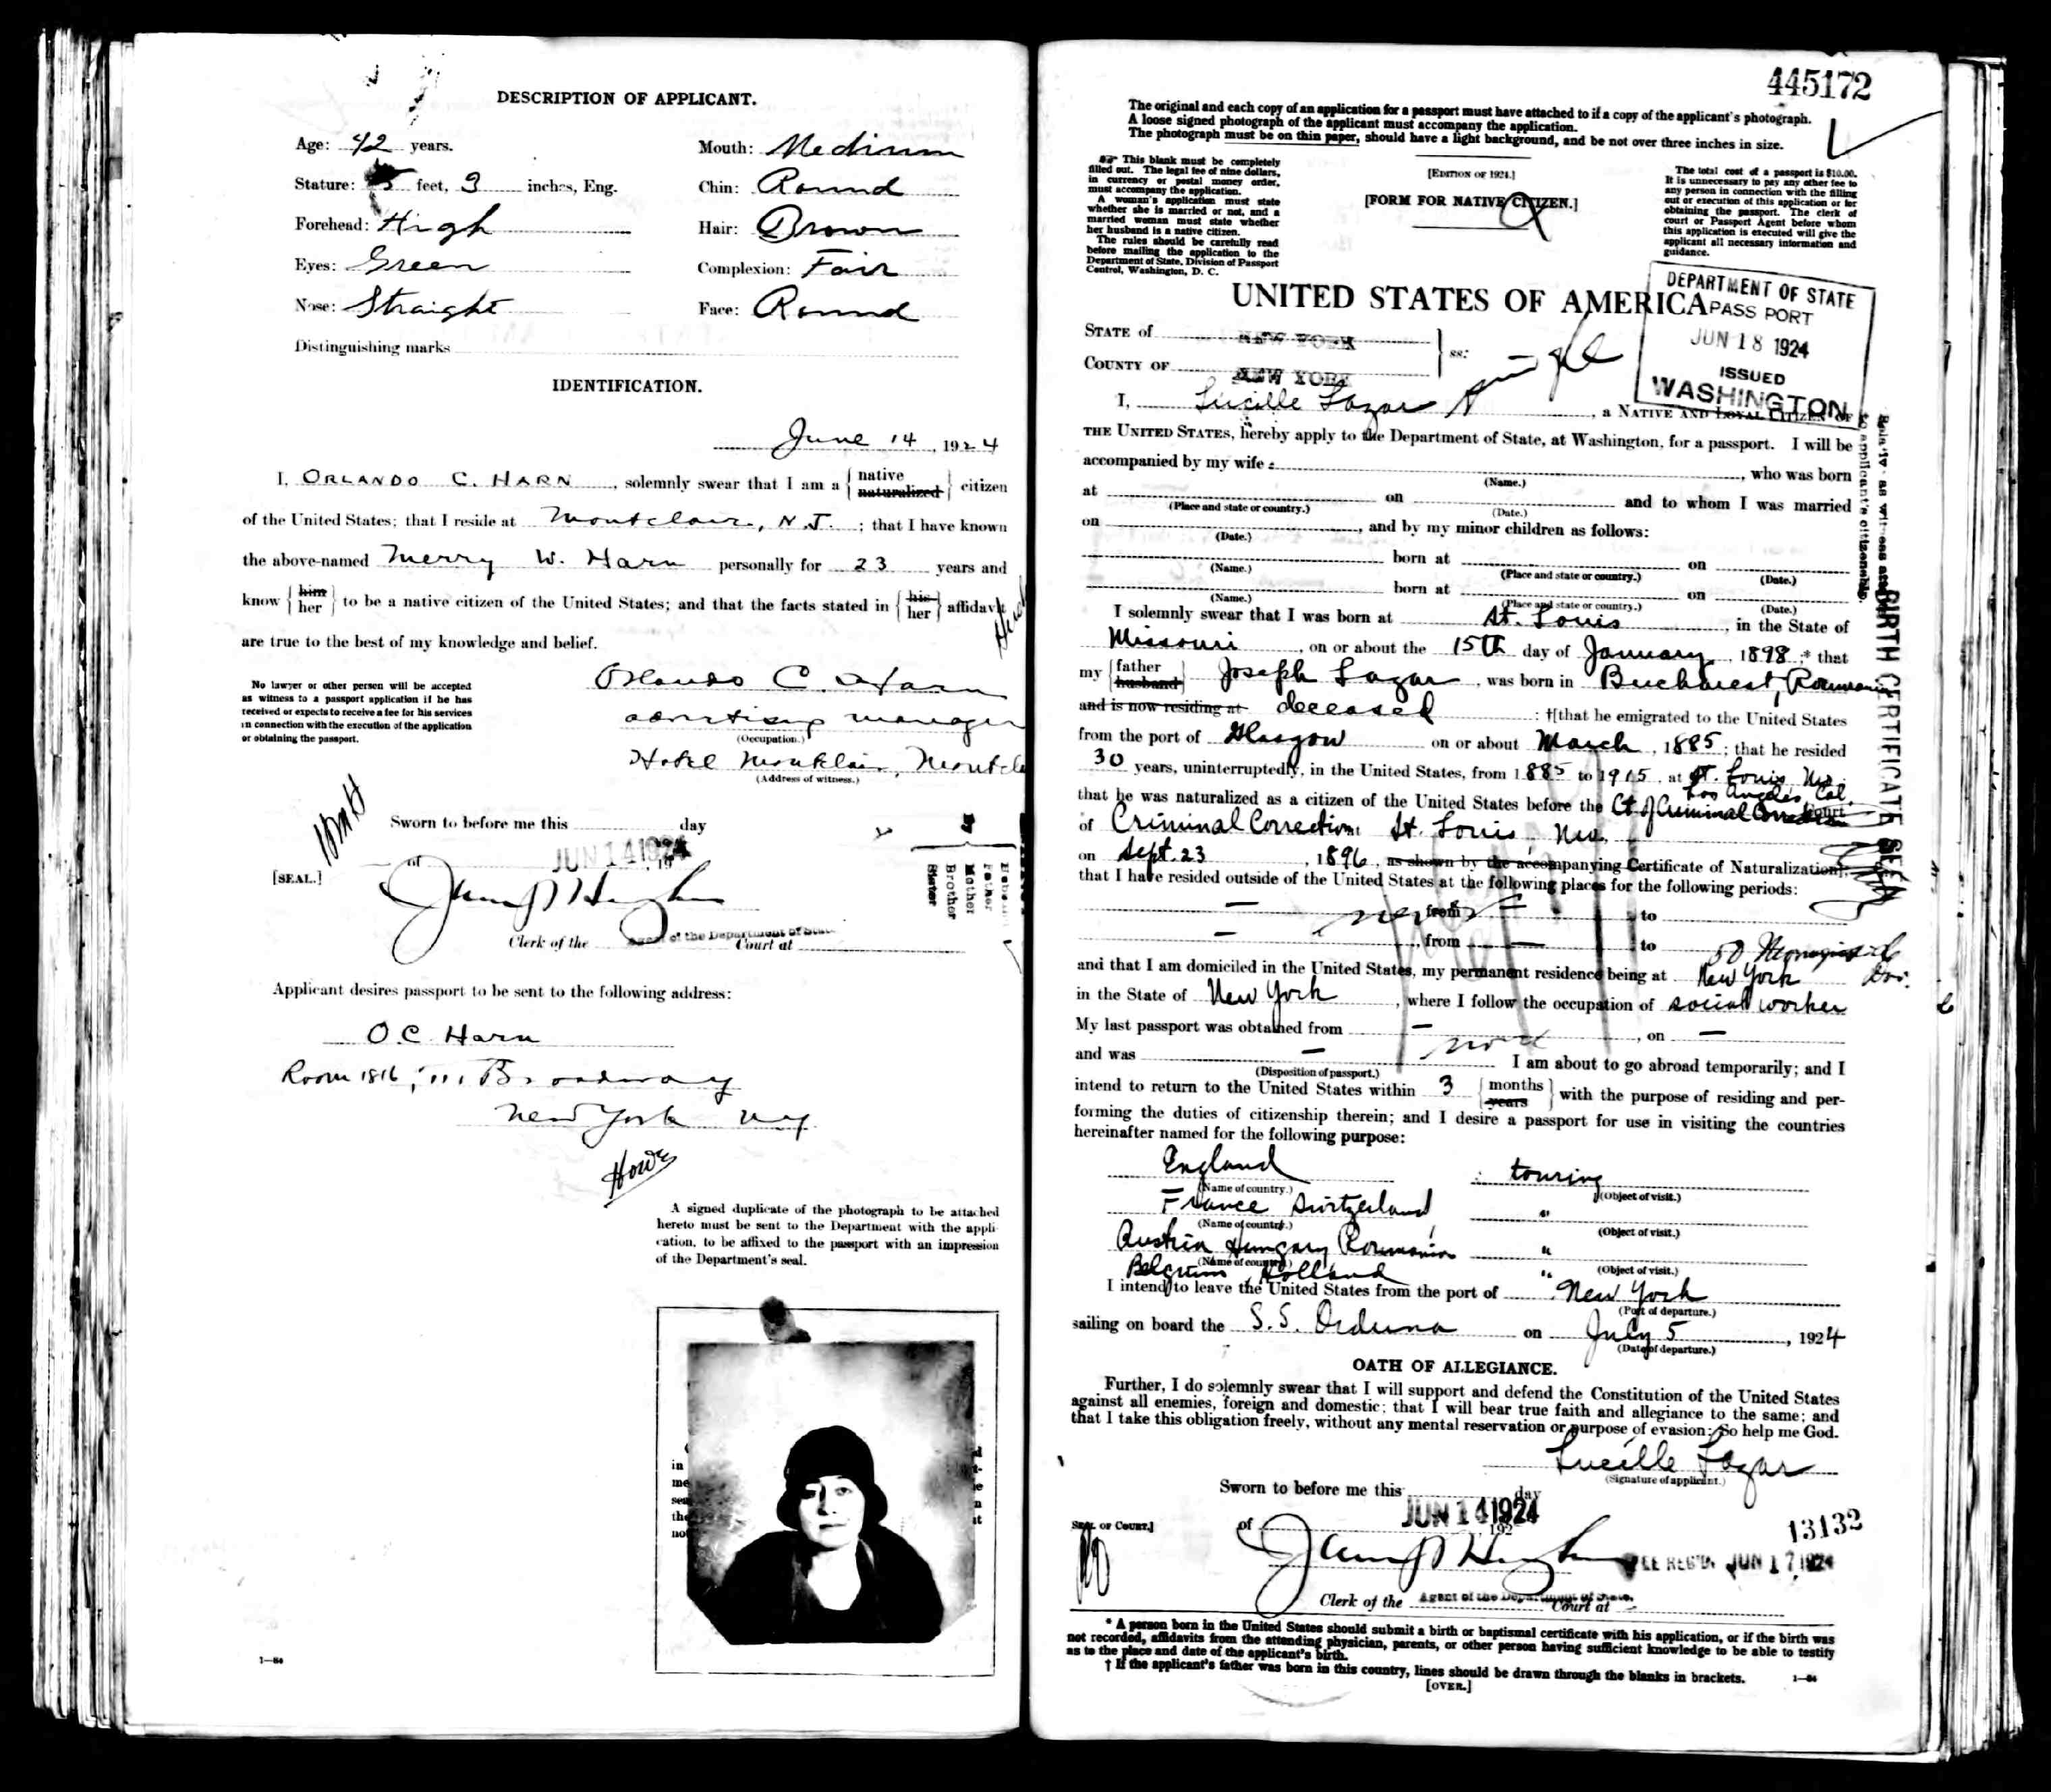 DESCRIPTION OF APPLICANT.
Age: 42 years.
Mouth: Medium
Stature: 5 feet, 3 inches, Eng.
Chin: Round
Forehead: High
Hair: Brown
Eyes: Green
Complexion: Fair
Nose: Straight
Face: Round
Distinguishing marks
IDENTIFICATION.
June 14, 1924
I, ORLANDO C. HARN, solemnly swear that I am a { native naturalized } citizen
of the United States; that I reside at Montclair, N.J.; that I have known
the above-named Merry W. Harn personally for 23 years and
know { him her } to be a native citizen of the United States; and that the facts stated in { his her } affidavit
are true to the best of my knowledge and belief.
Orlando C. Harn
No lawyer or other person will be accepted
as witness to a passport application if he has
received or expects to receive a fee for his services
in connection with the execution of the application
or obtaining the passport.
advertising manager
(Occupation.)
Hotel Montclair, Montcl
(Address of witness.)
Sworn to before me this day
of JUN 14 1924, 19
[SEAL.]
Husband
Father
Mother
Brother
Sister
Clerk of the Agent of the Department of State Court at
Applicant desires passport to be sent to the following address:
O.C. Harn
Room 1816, 111 Broadway
New York NY
Howe
A signed duplicate of the photograph to be attached
hereto must be sent to the Department with the appli-
cation, to be affixed to the passport with an impression
of the Department's seal.
in
me
sea
the
no
1—84
445172
The original and each copy of an application for a passport must have attached to it a copy of the applicant's photograph.
A loose signed photograph of the applicant must accompany the application.
The photograph must be on thin paper, should have a light background, and be not over three inches in size.
This blank must be completely
filled out. The legal fee of nine dollars,
in currency or postal money order,
must accompany the application.
A woman's application must state
whether she is married or not, and a
married woman must state whether
her husband is a native citizen.
The rules should be carefully read
before mailing the application to the
Department of State, Division of Passport
Control, Washington, D. C.
[EDITION OF 1921.]
[FORM FOR NATIVE CITIZEN.]
The total cost of a passport is $10.00.
It is unnecessary to pay any other fee to
any person in connection with the filling
out or execution of this application or for
obtaining the passport. The clerk of
court or Passport Agent before whom
this application is executed will give the
applicant all necessary information and
guidance.
UNITED STATES OF AMERICA
DEPARTMENT OF STATE
PASSPORT
JUN 18 1924
ISSUED
WASHINGTON
STATE OF NEW YORK
COUNTY OF NEW YORK
ss:
single
I, Lucille Lazar, a NATIVE AND LOYAL CITIZEN OF
THE UNITED STATES, hereby apply to the Department of State, at Washington, for a passport. I will be
accompanied by my wife, who was born
(Name.)
at on and to whom I was married
(Place and state or country.) (Date.)
on, and by my minor children as follows:
(Date.)
born at on
(Name.) (Place and state or country.) (Date.)
born at on
(Name.) (Place and state or country.) (Date.)
I solemnly swear that I was born at St. Louis, in the State of
Missouri, on or about the 15th day of January, 1898;* that
my { father husband } Joseph Lazar, was born in Bucharest, Roumania
and is now residing at deceased; †[that he emigrated to the United States
from the port of Glasgow on or about March, 1885; that he resided
30 years, uninterruptedly, in the United States, from 1885 to 1915, at St. Louis, Mo.
Los Angeles, Cal.
that he was naturalized as a citizen of the United States before the Ct. of Criminal Correction Court
of Criminal Correction St. Louis, Mo.
on Sept. 23, 1896, as shown by the accompanying Certificate of Naturalization];
that I have resided outside of the United States at the following places for the following periods:
— from — to
— , from — to
50 Morningside Dr.
and that I am domiciled in the United States, my permanent residence being at New York
in the State of New York, where I follow the occupation of social worker
My last passport was obtained from —, on —
none
and was — I am about to go abroad temporarily; and I
(Disposition of passport.)
intend to return to the United States within 3 { months years } with the purpose of residing and per-
forming the duties of citizenship therein; and I desire a passport for use in visiting the countries
hereinafter named for the following purpose:
England touring
(Name of country.) (Object of visit.)
France Switzerland "
(Name of country.) (Object of visit.)
Austria Hungary Roumania "
(Name of country.) (Object of visit.)
Belgium, Holland "
I intend to leave the United States from the port of New York
(Port of departure.)
sailing on board the S.S. Orduna on July 5, 1924
(Date of departure.)
OATH OF ALLEGIANCE.
Further, I do solemnly swear that I will support and defend the Constitution of the United States
against all enemies, foreign and domestic; that I will bear true faith and allegiance to the same; and
that I take this obligation freely, without any mental reservation or purpose of evasion: So help me God.
Lucille Lazar
(Signature of applicant.)
Sworn to before me this day
of JUN 14 1924, 192
[SEAL OF COURT.]
13132
FEE REC'D. JUN 17 1924
Clerk of the Agent of the Department of State. Court at
* A person born in the United States should submit a birth or baptismal certificate with his application, or if the birth was
not recorded, affidavits from the attending physician, parents, or other person having sufficient knowledge to be able to testify
as to the place and date of the applicant's birth.
† If the applicant's father was born in this country, lines should be drawn through the blanks in brackets.
[OVER.]
1—84
BIRTH CERTIFICATE SEEN
applicant's citizenship.